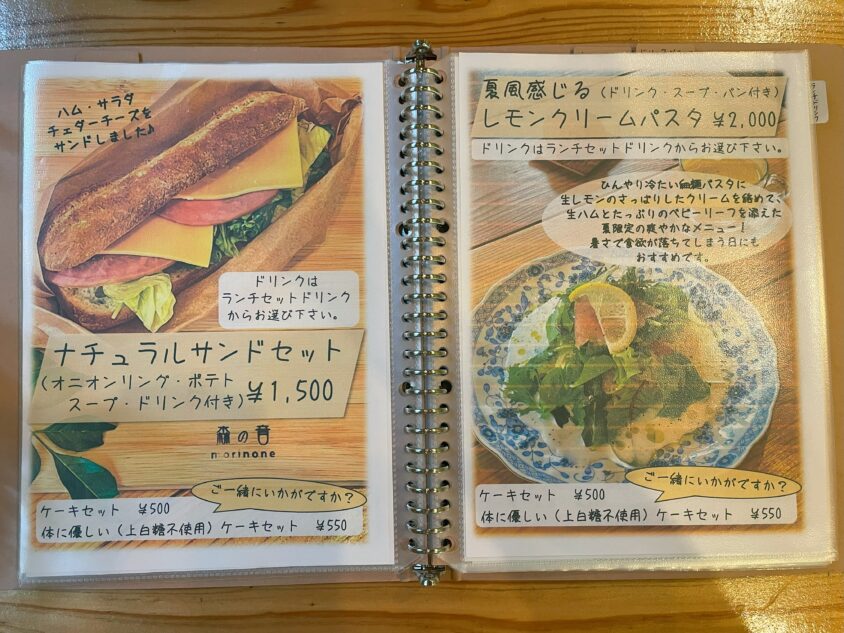 ハム・サラダ
チェダーチーズを
サンドしました♪
ドリンクは
ランチセットドリンク
からお選び下さい。
ナチュラルサンドセット
(オニオンリング・ポテト
スープ・ドリンク付き) ¥1,500
森の音
morinone
ご一緒にいかがですか？
ケーキセット ¥500
体に優しい（上白糖不使用）ケーキセット ¥550
夏風感じる（ドリンク・スープ・パン付き）
レモンクリームパスタ ¥2,000
ドリンクはランチセットドリンクからお選び下さい。
ひんやり冷たい細麺パスタに
生レモンのさっぱりしたクリームを絡めて、
生ハムとたっぷりのベビーリーフを添えた
夏限定の爽やかなメニュー！
暑さで食欲が落ちてしまう日にも
おすすめです。
ご一緒にいかがですか？
ケーキセット ¥500
体に優しい（上白糖不使用）ケーキセット ¥550